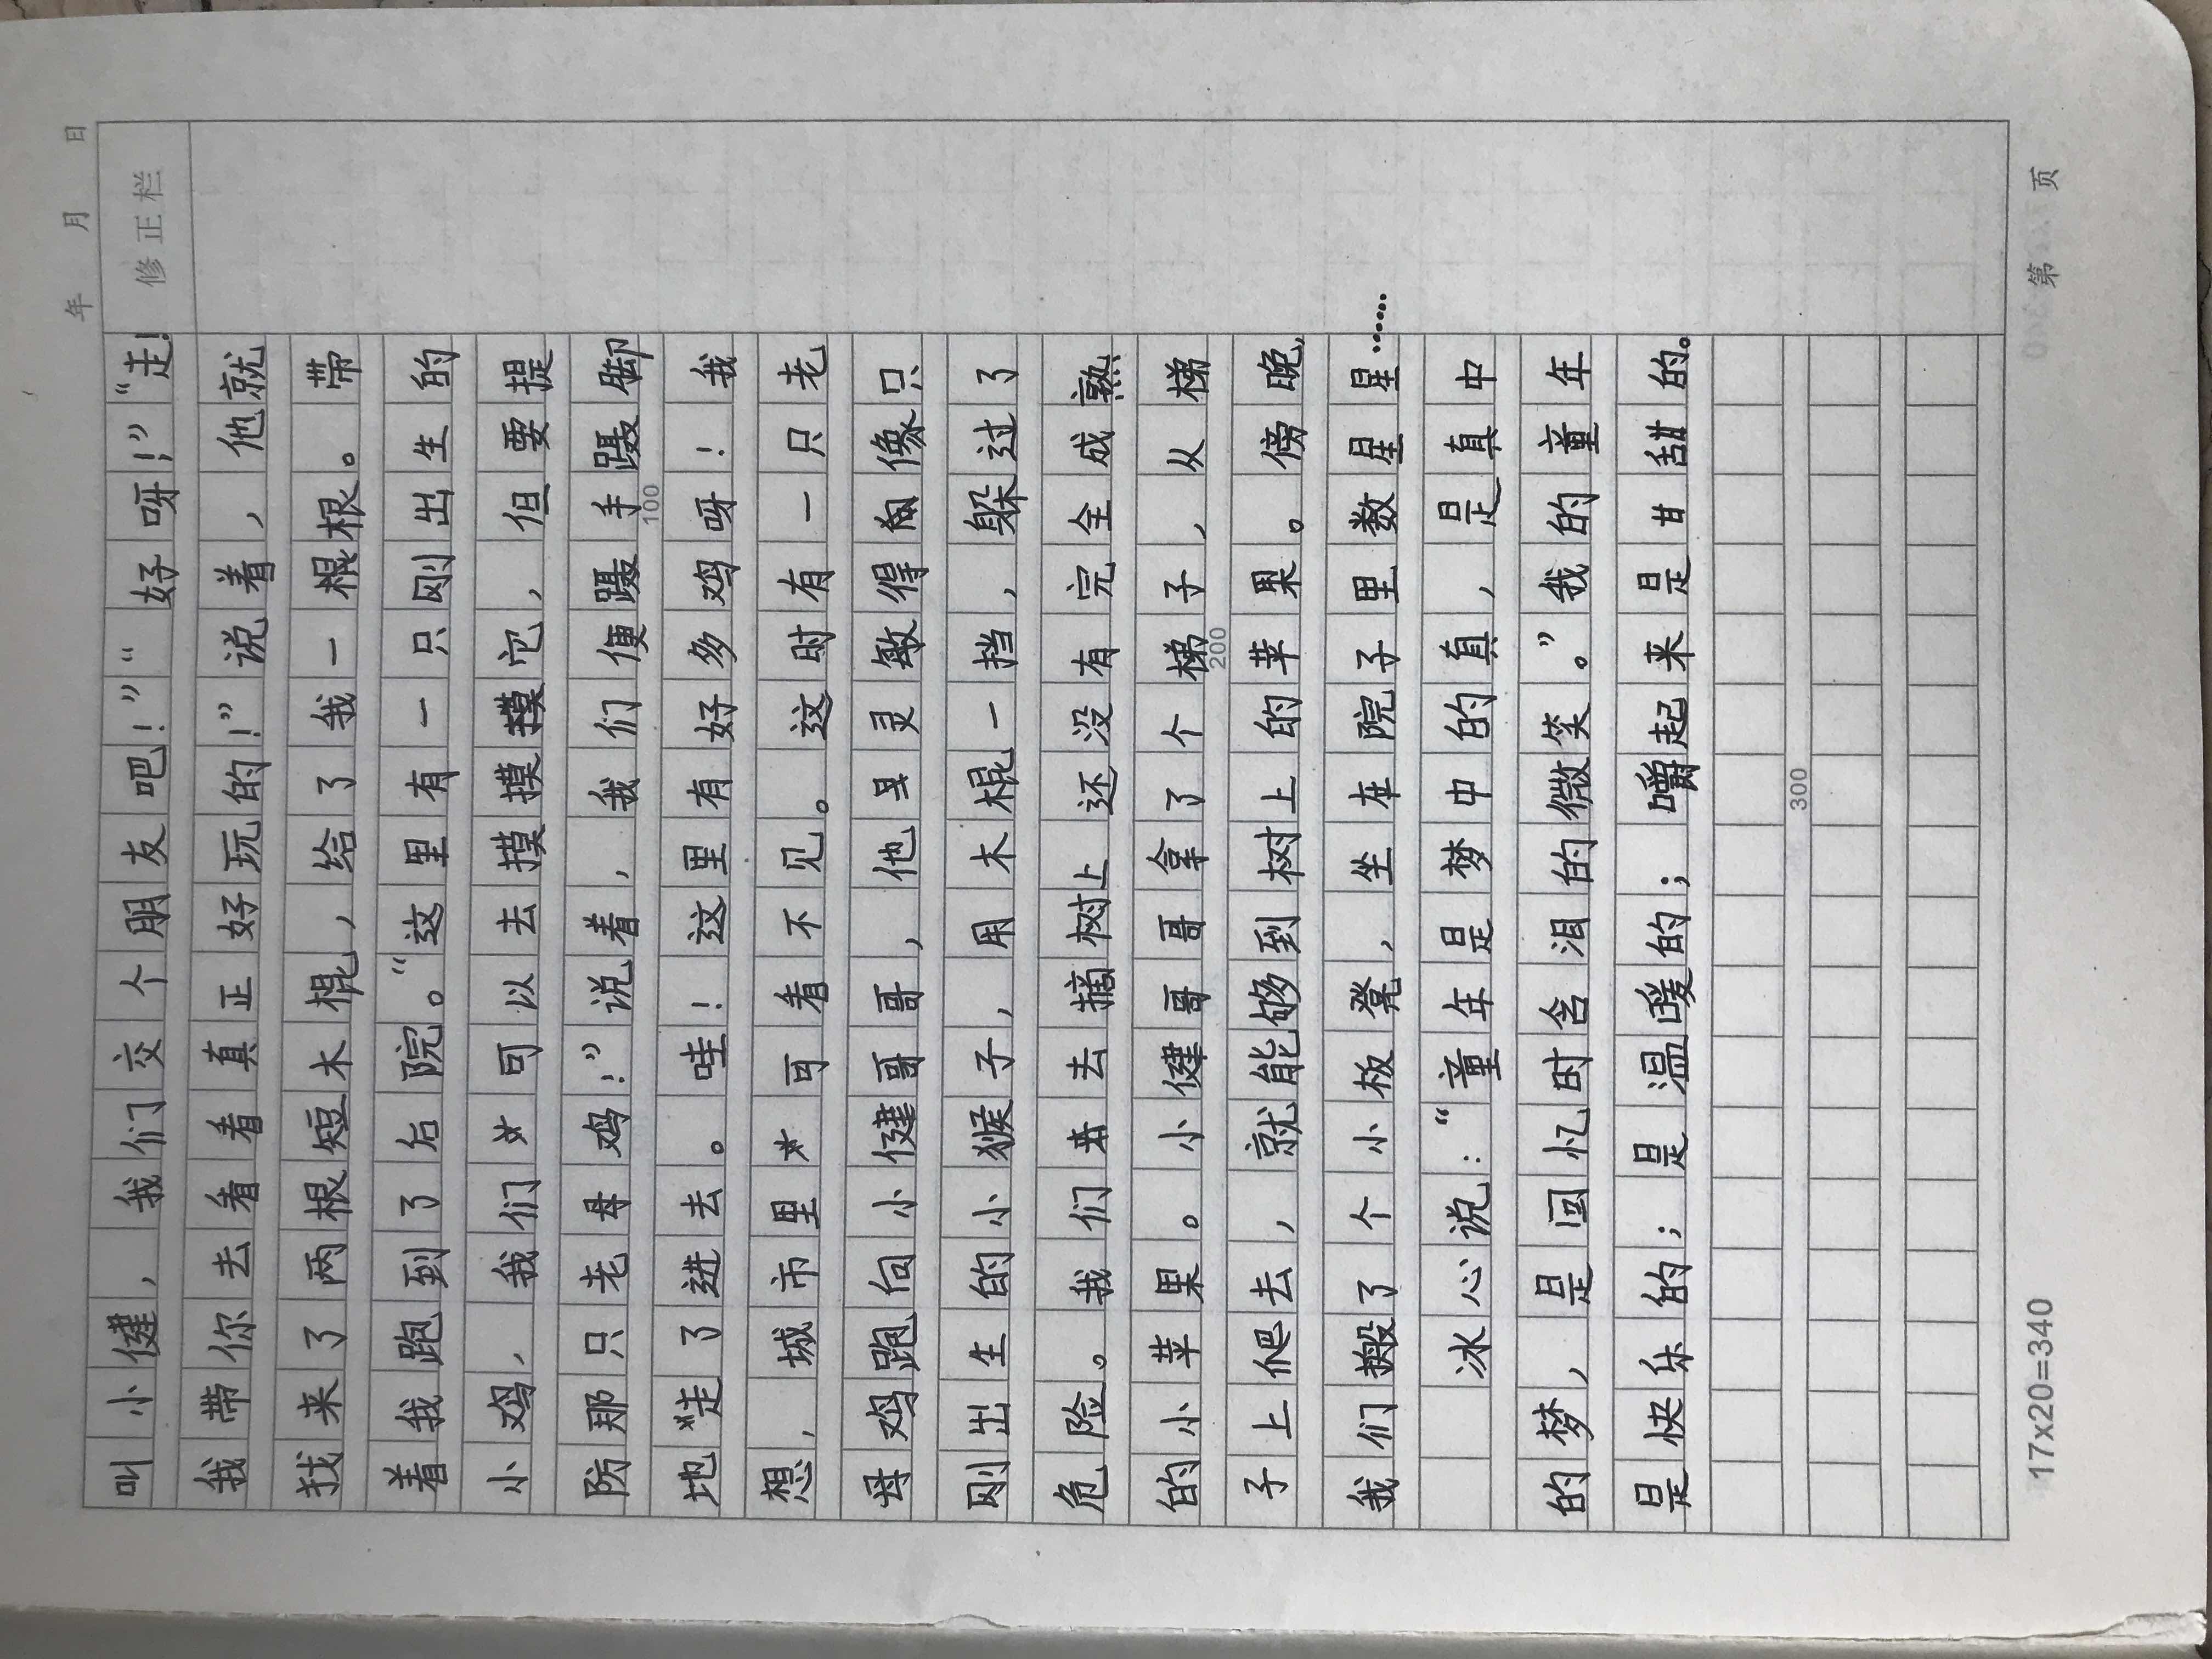 年 月 日
叫小健，我们交个朋友吧！”“好呀！”“走！
修正栏
我带你去看看真正好玩的！”说着，他就
找来了两根短木棍，给了我一根根。带
着我跑到了后院。“这里有一只刚出生的
小鸡，我们可以去摸摸摸它，但要提
防那只老母鸡！”说着，我们便蹑手蹑脚
100
地走了进去。哇！这里有好多鸡呀！我
想，城市里可看不见。这时有一只老
母鸡跑向小健哥哥，他灵敏得像只
刚出生的小猴子，用木棍一挡，躲过了
危险。我们去摘树上还没有完全成熟
的小苹果。小健哥哥拿了个梯子，从梯
200
子上爬去，就能够到树上的苹果。傍晚，
我们搬了个小板凳，坐在院子里数星星……
冰心说：“童年是梦中的真，是真中
的梦，是回忆时含泪的微笑。”我的童年
是快乐的；是温暖的；嚼起来是甘甜的。
300
17x20=340
第 页